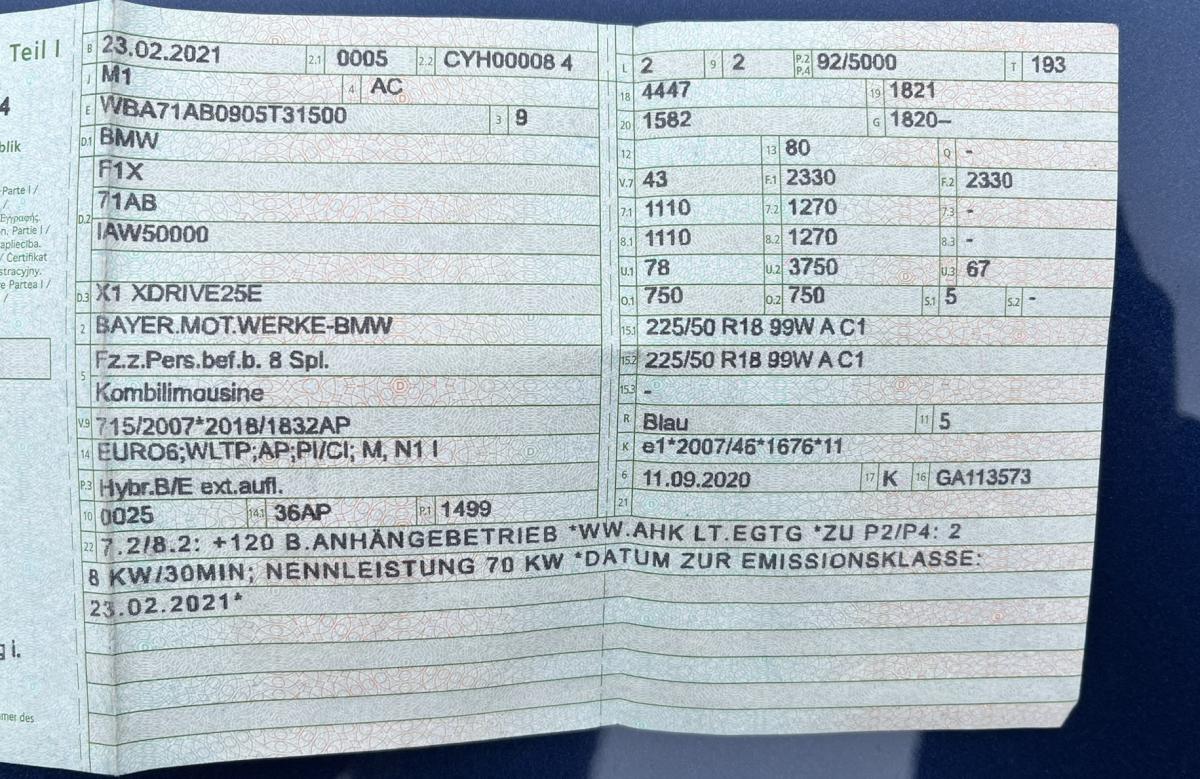 Teil I
4
blik
Parte I /
/
Εγγραφής.
n. Partie I /
apliecība.
/ Certifikat
stracyjny.
e Partea I /
/
g i.
mer des
B 23.02.2021 2.1 0005 2.2 CYH00008 4
J M1 4 AC
E WBA71AB0905T31500 3 9
D.1 BMW
F1X
D.2 71AB
IAW50000
D.3 X1 XDRIVE25E
2 BAYER.MOT.WERKE-BMW
5 Fz.z.Pers.bef.b. 8 Spl.
Kombilimousine
V.9 715/2007*2018/1832AP
14 EURO6;WLTP;AP;PI/CI; M, N1 I
P.3 Hybr.B/E ext.aufl.
10 0025 14.1 36AP P.1 1499
L 2 9 2 P.2 P.4 92/5000 T 193
18 4447 19 1821
20 1582 G 1820–
12 13 80 Q -
V.7 43 F.1 2330 F.2 2330
7.1 1110 7.2 1270 7.3 -
8.1 1110 8.2 1270 8.3 -
U.1 78 U.2 3750 U.3 67
O.1 750 O.2 750 S.1 5 S.2 -
15.1 225/50 R18 99W A C1
15.2 225/50 R18 99W A C1
15.3 -
R Blau 11 5
K e1*2007/46*1676*11
6 11.09.2020 17 K 16 GA113573
21
22 7.2/8.2: +120 B.ANHÄNGEBETRIEB *WW.AHK LT.EGTG *ZU P2/P4: 2
8 KW/30MIN; NENNLEISTUNG 70 KW *DATUM ZUR EMISSIONSKLASSE:
23.02.2021*